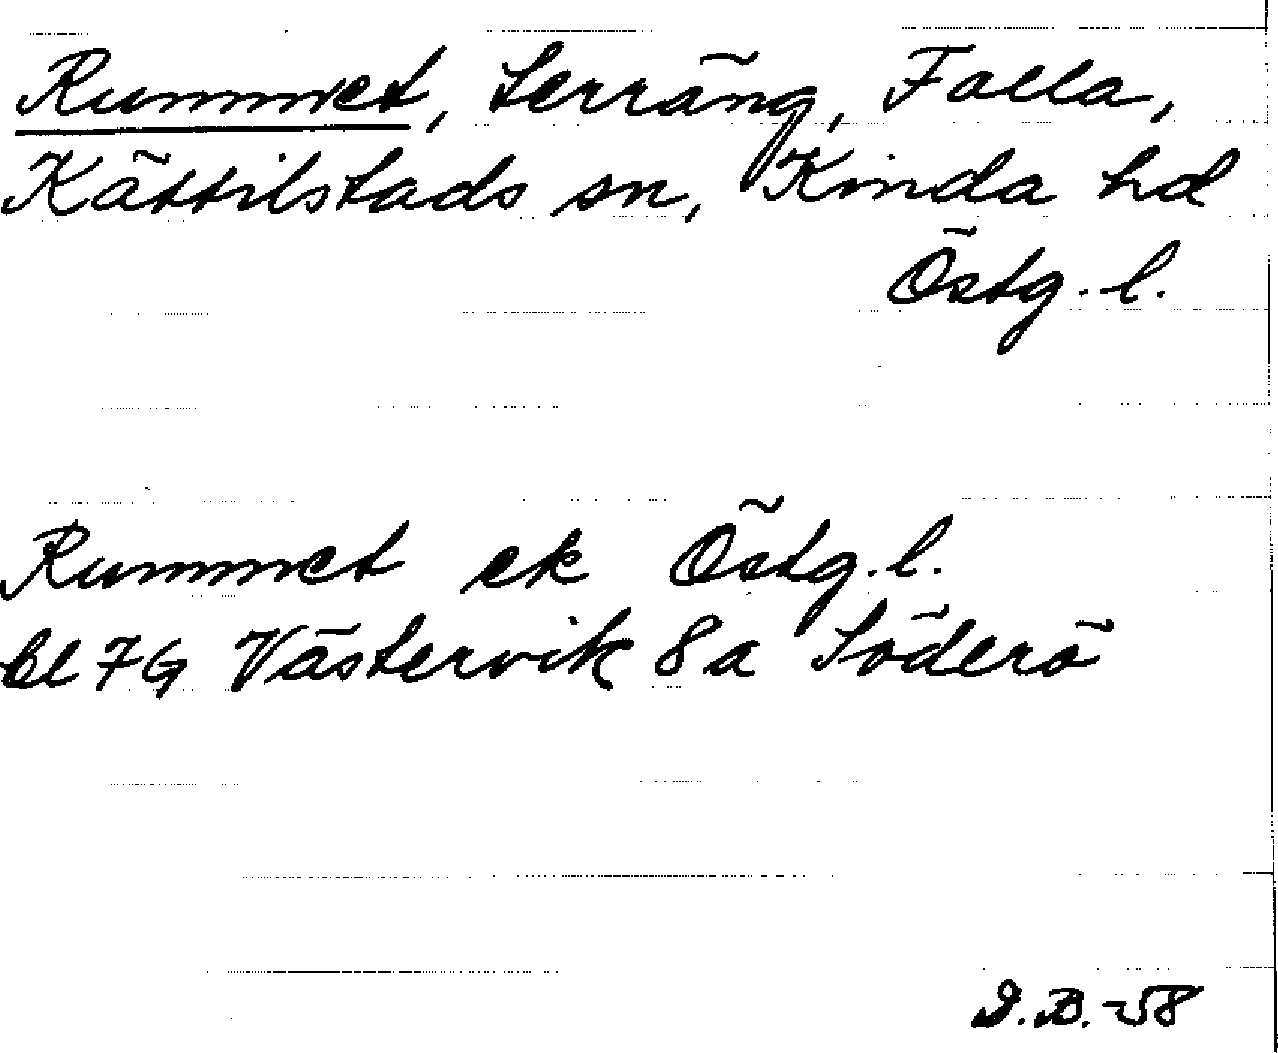 Rummet, terräng, Falla,
Kättilstads sn, Kinda hd
Östg. l.
Rummet ek Östg. l.
bl 7G Västervik 8a Söderö
D.B. -58